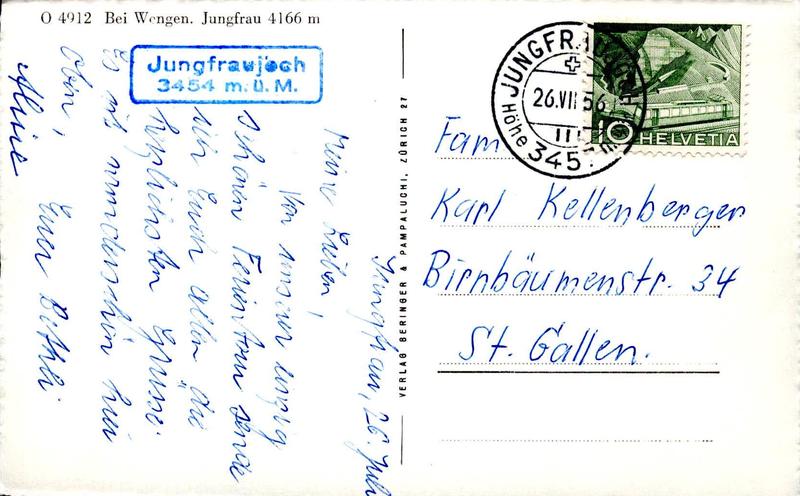 O 4912 Bei Wengen. Jungfrau 4166 m
Jungfraujoch
3454 m.ü.M.
Jungfrau, 26. Juli
Meine Lieben,
Von unserer einzig
schönen Ferientour sende
ich Euch allen die
herzlichsten Grüsse.
Es ist wunderschön hier
oben,
Euer Bethli
VERLAG BERINGER & PAMPALUCHI, ZÜRICH 27
JUNGFRAUJOCH
26.VII 56
Höhe 3457 m
10 HELVETIA
Fam
Karl Kellenberger
Birnbäumenstr. 34
St. Gallen.